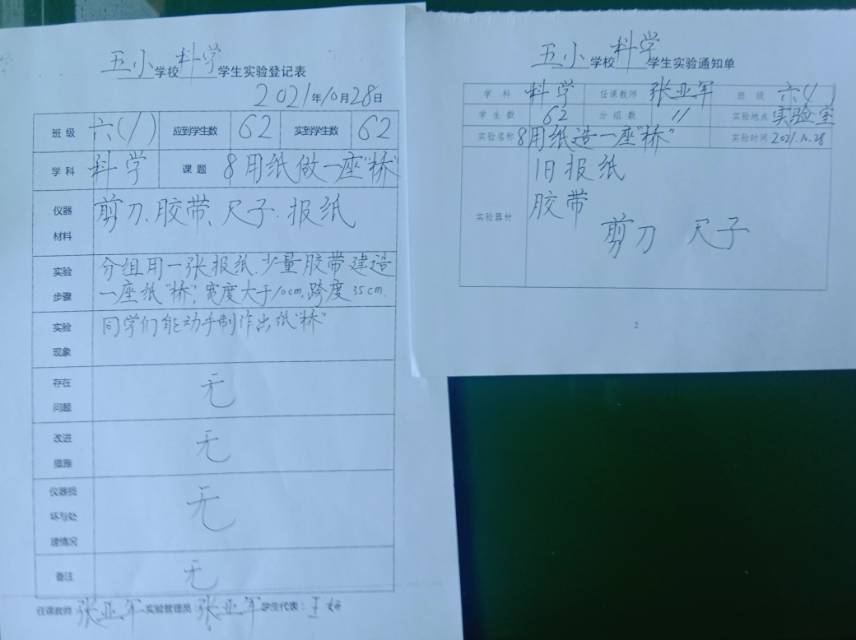 五小学校科学学生实验登记表
2021年10月28日
班级 六(1) 应到学生数 62 实到学生数 62
学科 科学 课题 8用纸做一座"桥"
仪器材料 剪刀、胶带、尺子、报纸
实验步骤 分组用一张报纸、少量胶带建造
一座纸"桥",宽度大于10cm,跨度35cm.
实验现象 同学们能动手制作出纸"桥"
存在问题 无
改进措施 无
仪器损坏与处理情况 无
备注 无
任课教师:张亚军 实验管理员:张亚军 学生代表:王妍
五小学校科学学生实验通知单
学科 科学 任课教师 张亚军 班级 六(1)
学生数 62 分组数 11 实验地点 实验室
实验名称 8用纸造一座"桥" 实验时间 2021.10.28
实验器材 旧报纸
胶带
剪刀 尺子
2